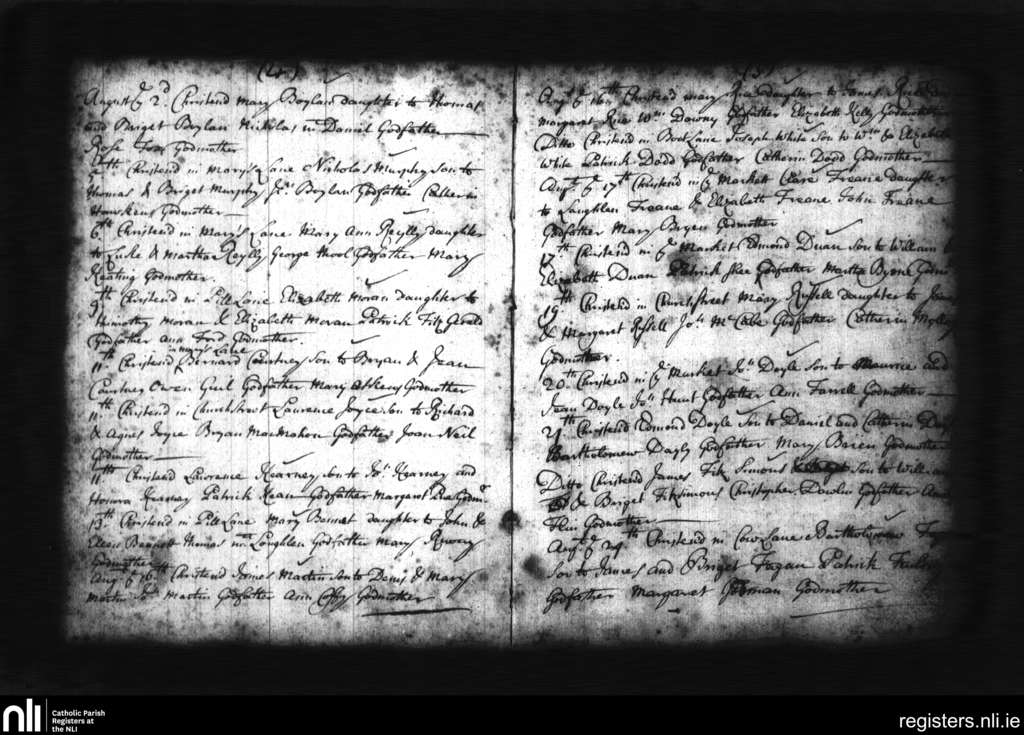 (4)
August ye 2d. Christend Mary Boylan daughter to Thomas
and Briget Boylan Nicholas mc Daniel Godfather
Rose Godmother
4th Christend in Mary's Lane Nicholas Murphy son to
Thomas & Briget Murphy Jas. Boylan Godfather Catterin
Hawkens Godmother
6th Christend in Mary's Lane Mary Ann Reylly daughter
to Luke & Martha Reylly George Mool Godfather Mary
Keating Godmother.
9th Christend in Pill Lane Elizabeth Moran daughter to
Thimothy Moran & Elizabeth Moran Patrick Fitz Gerald
Godfather Ann Ford Godmother.
in Mary's Lane
11th Christend Bernard Courtney son to Bryan & Jean
Courtney Owen Godfather Mary Godmother
11th Christend in Church Street Laurence Joyce son to Richard
& Agnes Joyce Bryan MacMahon Godfather Joan Neil
Godmother
11th Christend Lawrence Kearney son to Jon. Kearney and
Honora Kearney Patrick Kean Godfather Margaret Godmr
13th Christend in Pill Lane Mary Bennet daughter to John &
Eleen Bennett Thomas mc Loughlen Godfather Mary
Godmother
Aug ye 16th Christend James Martin son to Denis & Mary
Martin Jon. Martin Godfather Ann Coffy Godmother
(5)
Augt ye 16th Christend Mary Rea daughter to James
Margaret Rea Wm. Downy Godfather Elizabeth Kelly Godmother
Ditto Christend in Boot Lane Joseph White Son to Wm. & Elizabeth
White Patrick Dodd Godfather Catherin Dodd Godmother
Augt ye 17th Christend in ye Markett Clare Freane daughter
to Laughlen Freane & Elizabeth Freane John Freane
Godfather Mary Bryen Godmother
17th Christend in ye Market Edmond Duan son to William &
Elizabeth Duan Patrick Godfather Martha Byrne
19th Christend in Church Street Mary Russell daughter to James
& Margaret Russell Jon. McCabe Godfather Catherin
Godmother.
20th Christend in ye Market Jn. Doyle son to Maurice and
Jean Doyle Jon. Hunt Godfather Ann Farrell Godmother
21th Christend Edmond Doyle son to Daniel and Catherin
Bartholomew Godfather Mary Brien Godmother
Ditto Christend James Fitz Simons son to William
& Briget Fitzsimons Christopher Dowlin Godfather
Godmother
Augt ye 24th Christend in Cow Lane Bartholomew
son to James and Briget Fagan Patrick
Godfather Margaret Godmother
nli
Catholic Parish
Registers at
the NLI
registers.nli.ie